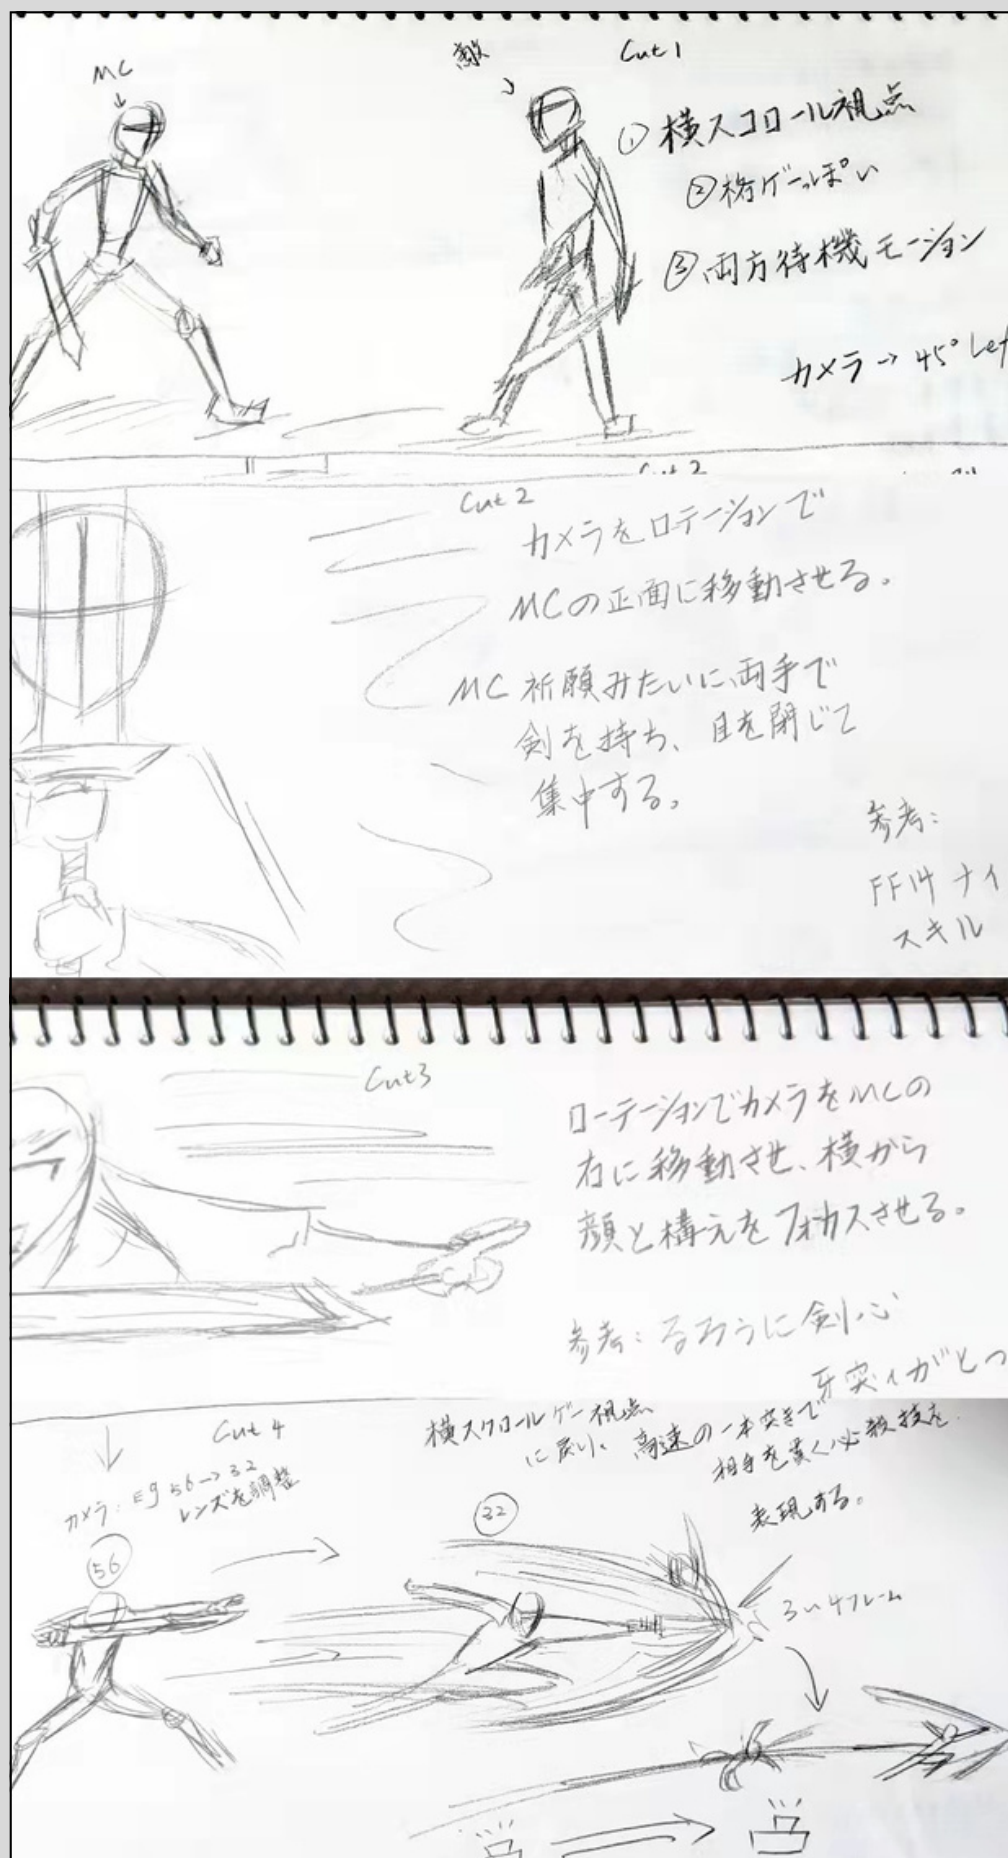 MC
敵
Cut1
① 横スコロール視点
② 格ゲーっぽい
③ 両方待機モーション
カメラ → 45° Lef
Cut 2
Cut 2
カメラをロテーションで
MCの正面に移動させる。
MC 祈願みたいに、両手で
剣を持ち、目を閉じて
集中する。
参考:
FF14 ナイ
スキル
Cut3
ローテーションでカメラをMCの
右に移動させ、横から
顔と構えをフォカスさせる。
参考: るろうに剣心
牙突(がとつ
Cut 4
横スクロールゲー視点
に戻り、高速の一本突きで
相手を貫く必殺技を
表現する。
カメラ: Eg 56 → 32
レンズを調整
56
32
3~4フレーム